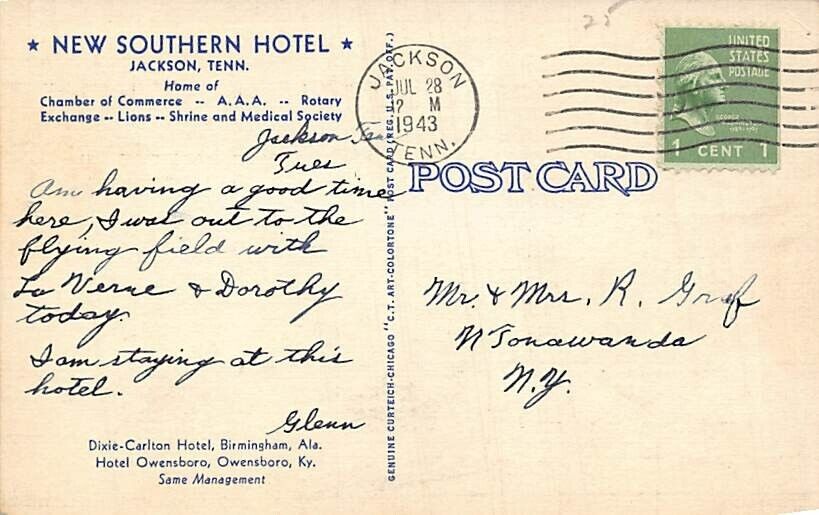 ★ NEW SOUTHERN HOTEL ★
JACKSON, TENN.
Home of
Chamber of Commerce -- A.A.A. -- Rotary
Exchange -- Lions -- Shrine and Medical Society
Jackson Ten
Tues
Am having a good time
here, I was out to the
flying field with
La Verne & Dorothy
today.
I am staying at this
hotel.
Glenn
Dixie-Carlton Hotel, Birmingham, Ala.
Hotel Owensboro, Owensboro, Ky.
Same Management
GENUINE CURTEICH-CHICAGO "C.T. ART-COLORTONE" POST CARD (REG. U.S. PAT. OFF.)
25
JACKSON
JUL 28
12 M
1943
TENN.
UNITED
STATES
POSTAGE
GEORGE
1 CENT 1
POST CARD
Mr. & Mrs. R. Graf
N Tonawanda
N.Y.